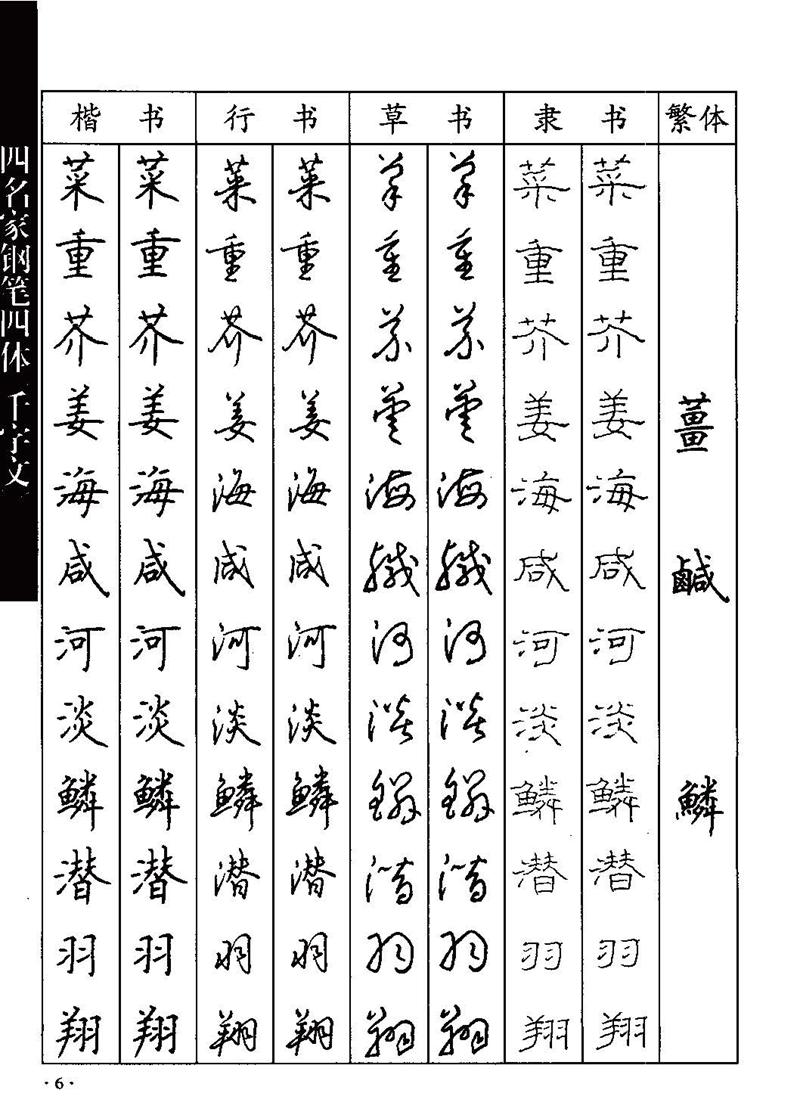 四名家钢笔四体 千字文
楷书 行书 草书 隶书 繁体
菜 菜 菜 菜 菜 菜 菜 菜
重 重 重 重 重 重 重 重
芥 芥 芥 芥 芥 芥 芥 芥
姜 姜 姜 姜 薑 薑 姜 姜 薑
海 海 海 海 海 海 海 海
咸 咸 咸 咸 鹹 鹹 咸 咸 鹹
河 河 河 河 河 河 河 河
淡 淡 淡 淡 淡 淡 淡 淡
鳞 鳞 鳞 鳞 鳞 鳞 鳞 鳞 鱗
潜 潜 潜 潜 潜 潜 潜 潜
羽 羽 羽 羽 羽 羽 羽 羽
翔 翔 翔 翔 翔 翔 翔 翔
·6·